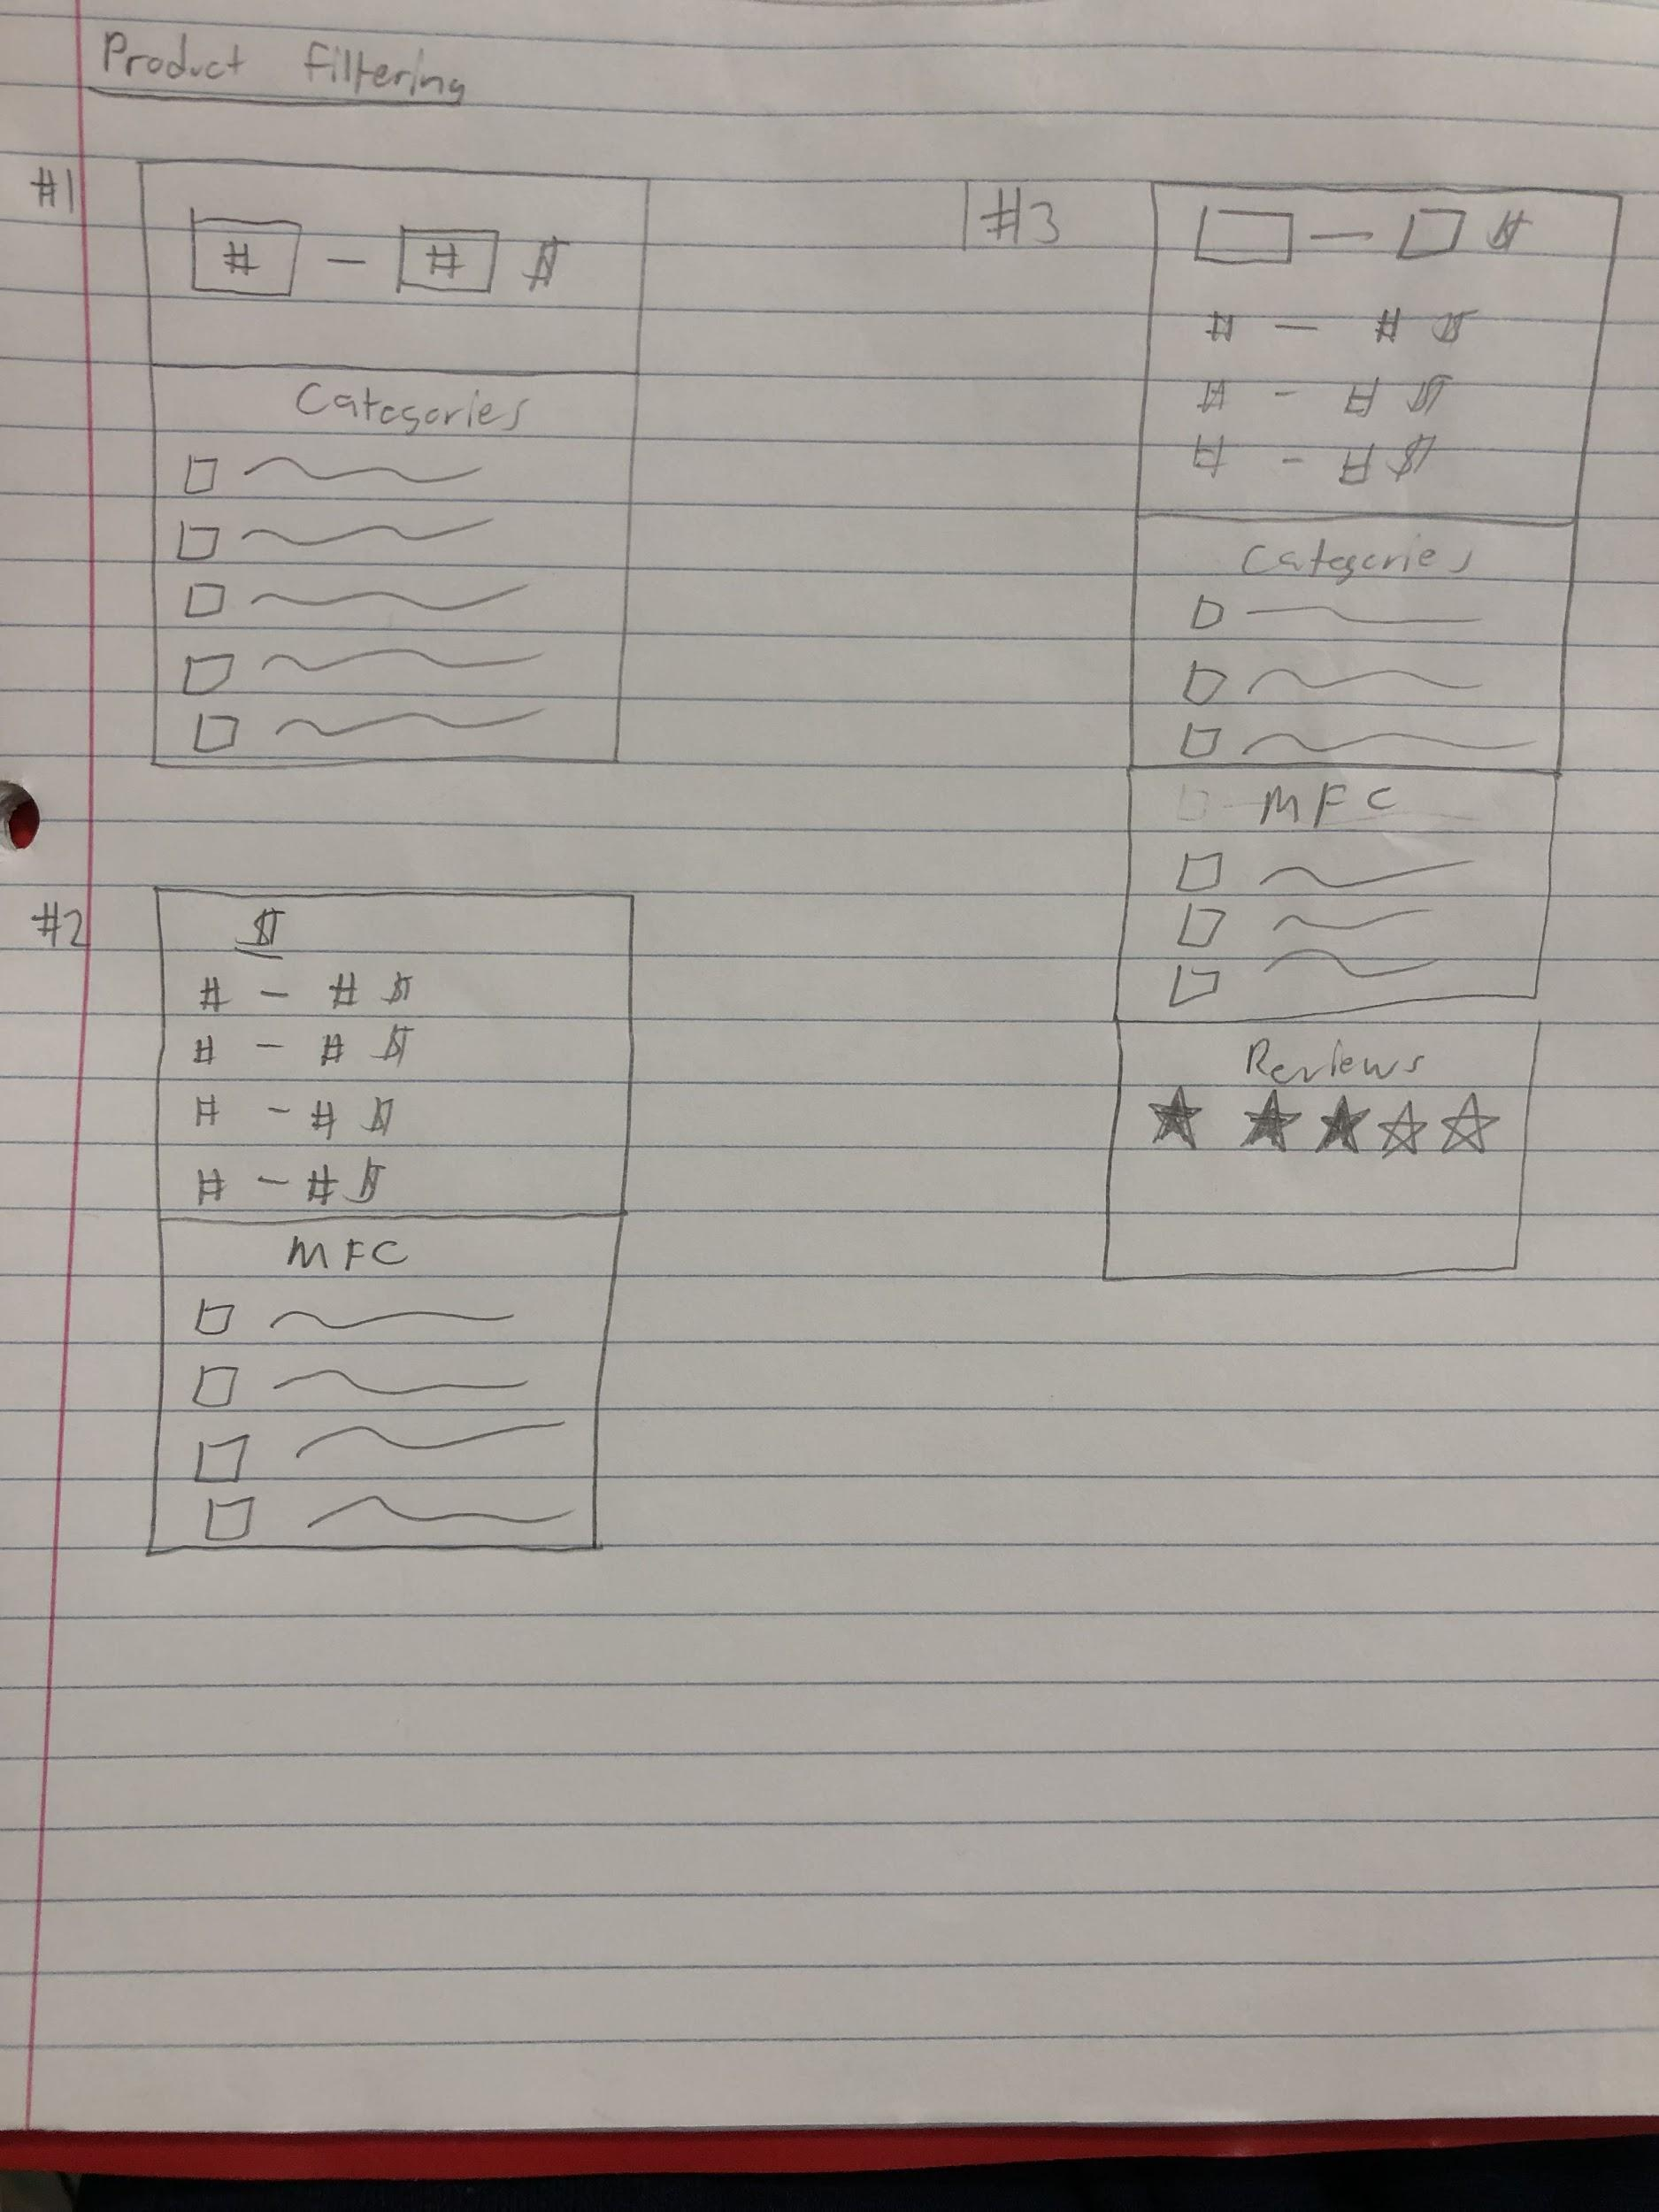 Product Filtering
#1
# - # $
Categories
#2
$
# - # $
# - # $
# - # $
# - # $
MFC
#3
— $
# — # $
# - # $
# - # $
Categories
MFC
Reviews